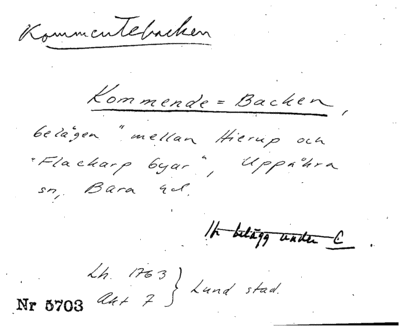 Kommentebacken
Kommende = Backen,
belägen "mellan Hierup och
"Flackarp byar", Uppåkra
sn, Bara hd.
belägg under C.
Lh. 1763
Akt 7 } Lund stad
Nr 5703